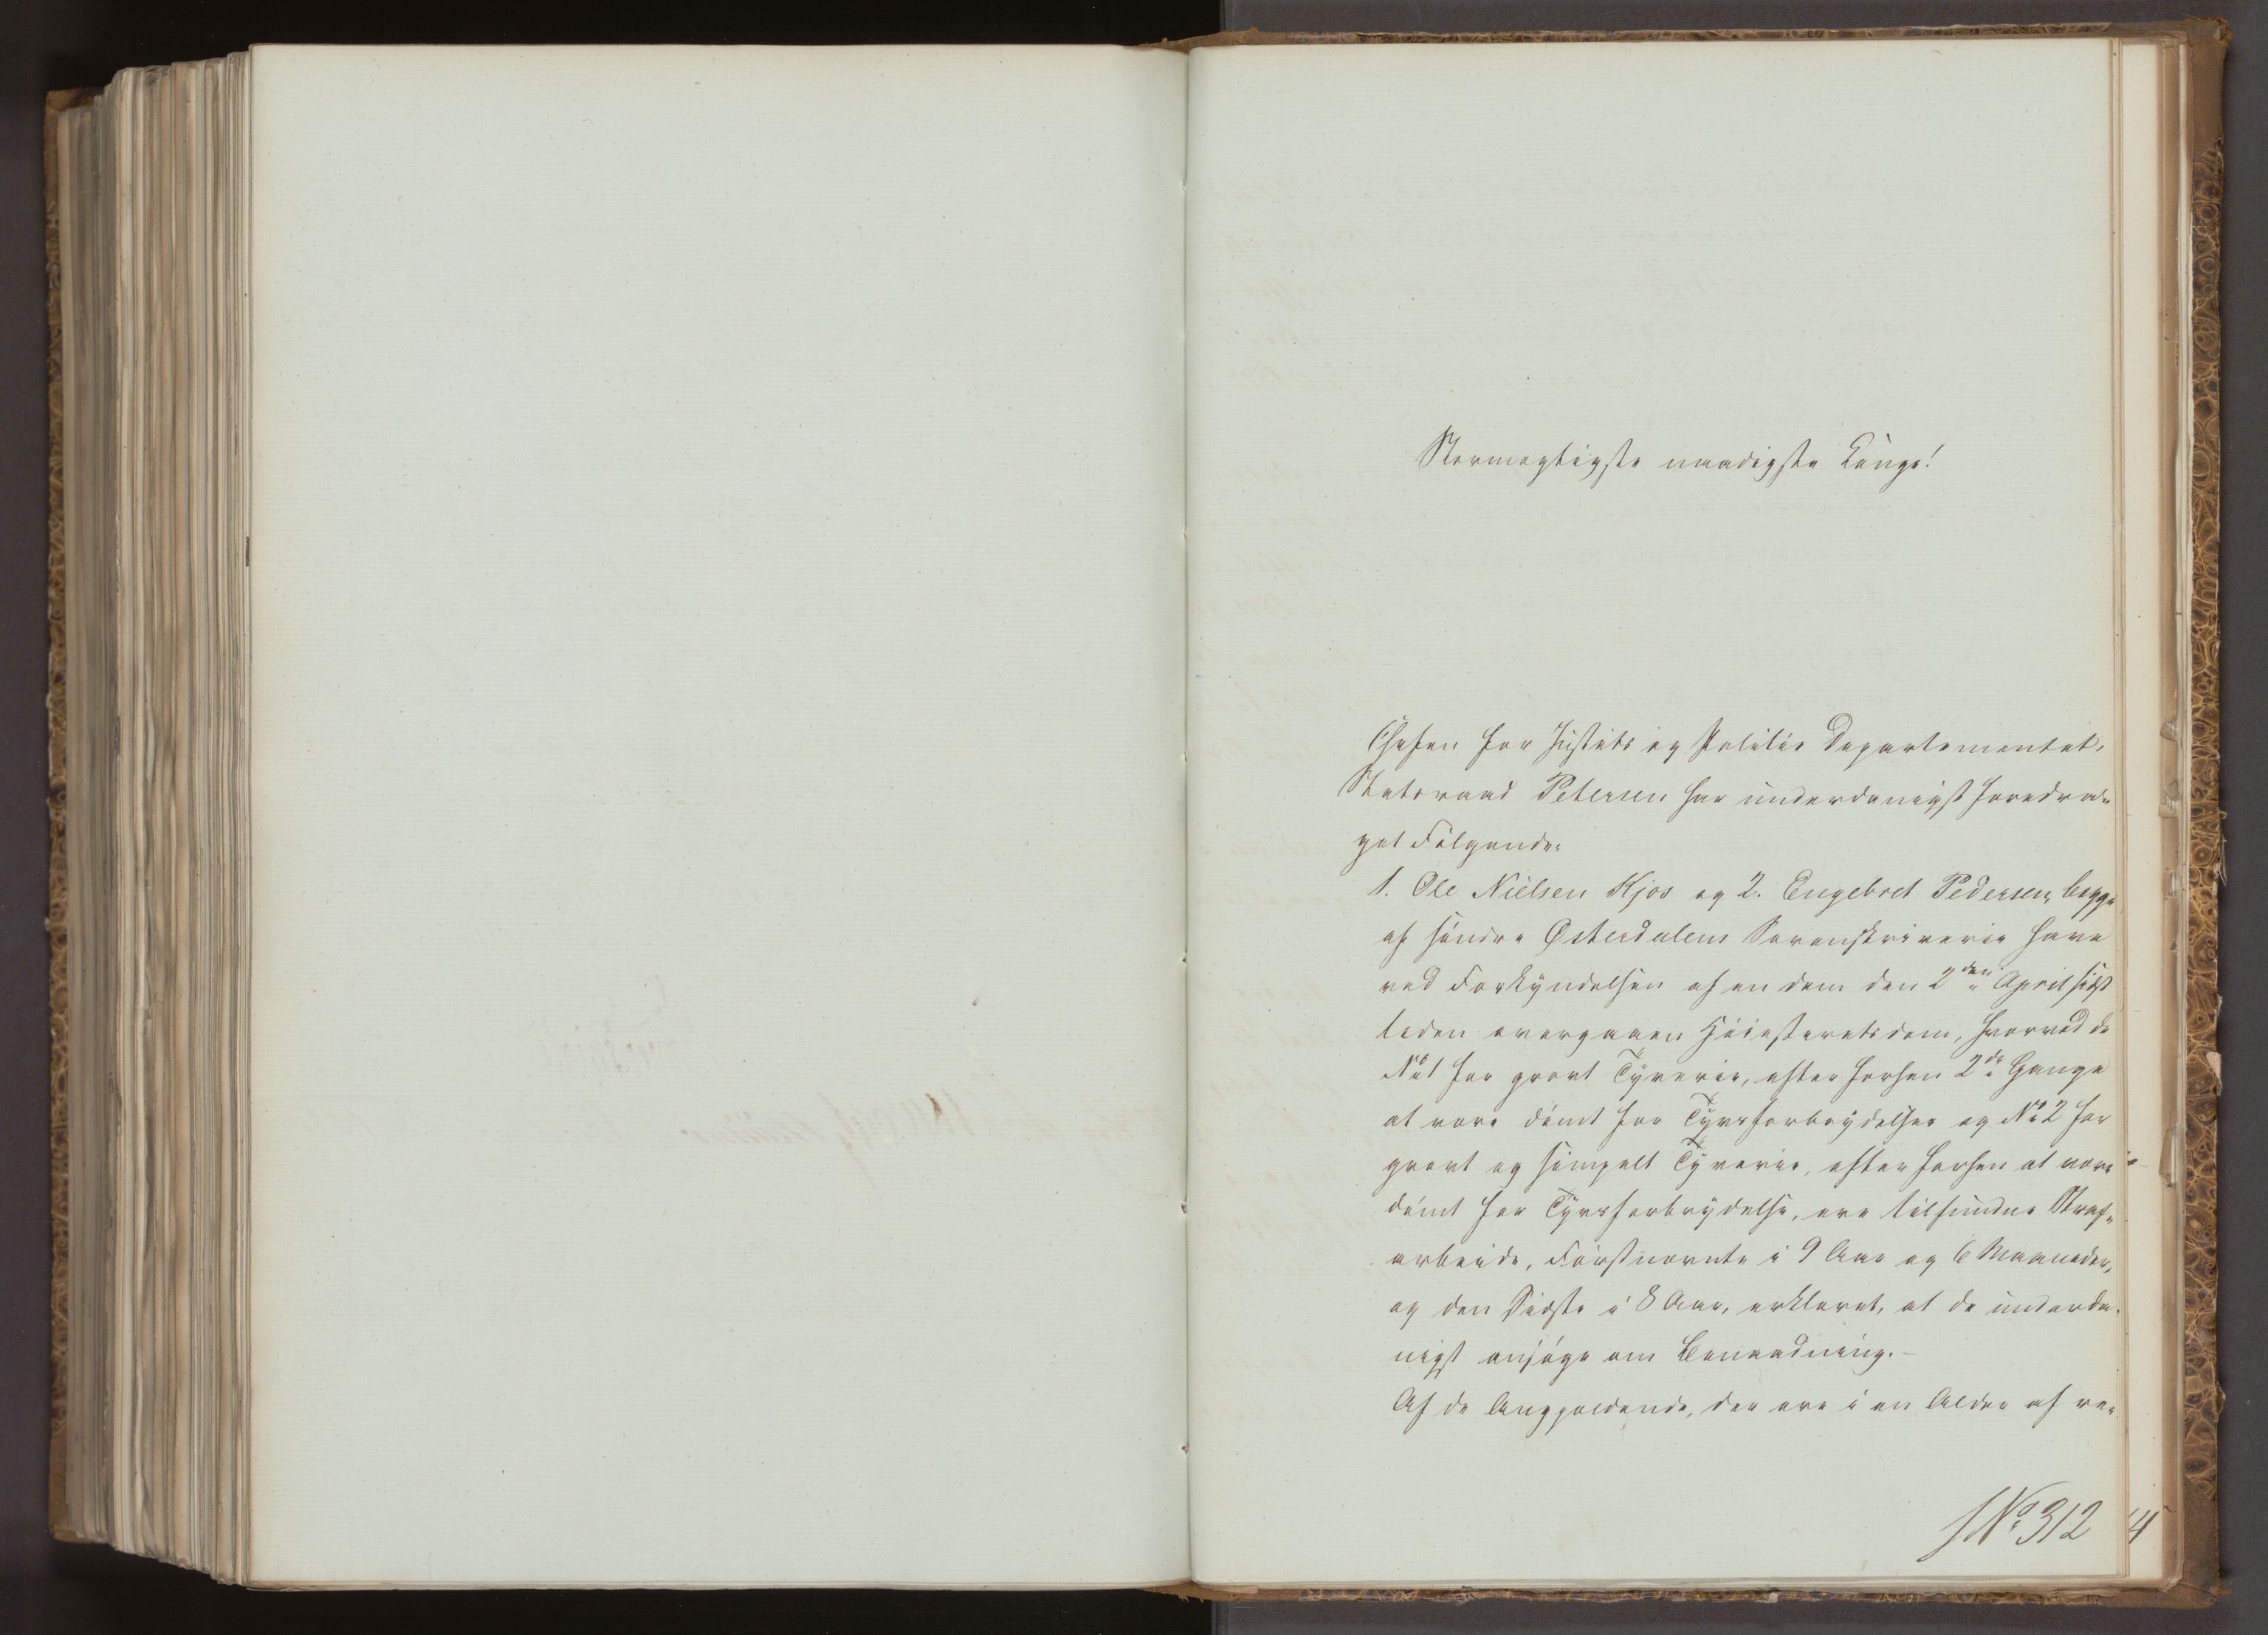 Stormægtigste naadigste Konge!
Chefen for Justits og Politie Departementet,
Statsraad Petersen har underdanigst foredra-
get Følgende:
1. Ole Nielsen Kjos og 2. Engebret Pedersen, begge
af søndre Østerdalens Sorenskriverie have
ved Forkyndelsen af en dem den 2den April sidst
leden overgaaen Høiesteretsdom, hvorved de
No 1 for grovt Tyverie, efter forhen 2de Gange
at være dømt for Tyvsforbrydelser og No 2 for
grovt og simpelt Tyverie, efter forhen at være
dømt for Tyvsforbrydelse, ere tilfundne Straf-
arbeide, Førstnævnte i 9 Aar og 6 Maaneder,
og den Sidste i 8 Aar, erklæret, at de underda-
nigst ansøge om Benaadning.-
Af de Angjældende, der ere i en Alder af re-
No 312